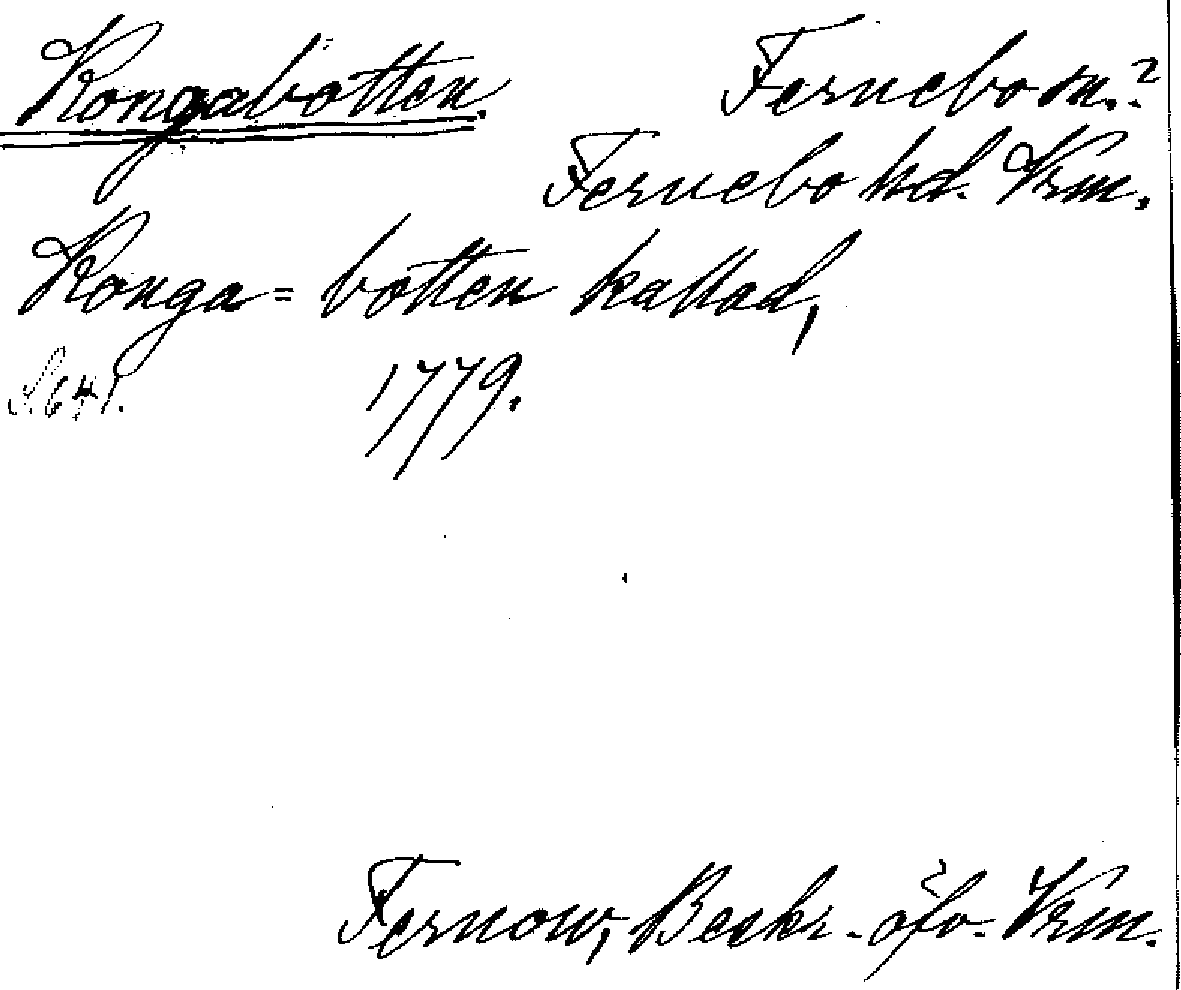 Kongabotten. Fernebo sn.?
Fernebo hd. Vrm.
Konga= botten kallad,
S. 641. 1779.
Fernow, Beskr. öfv. Vrm.